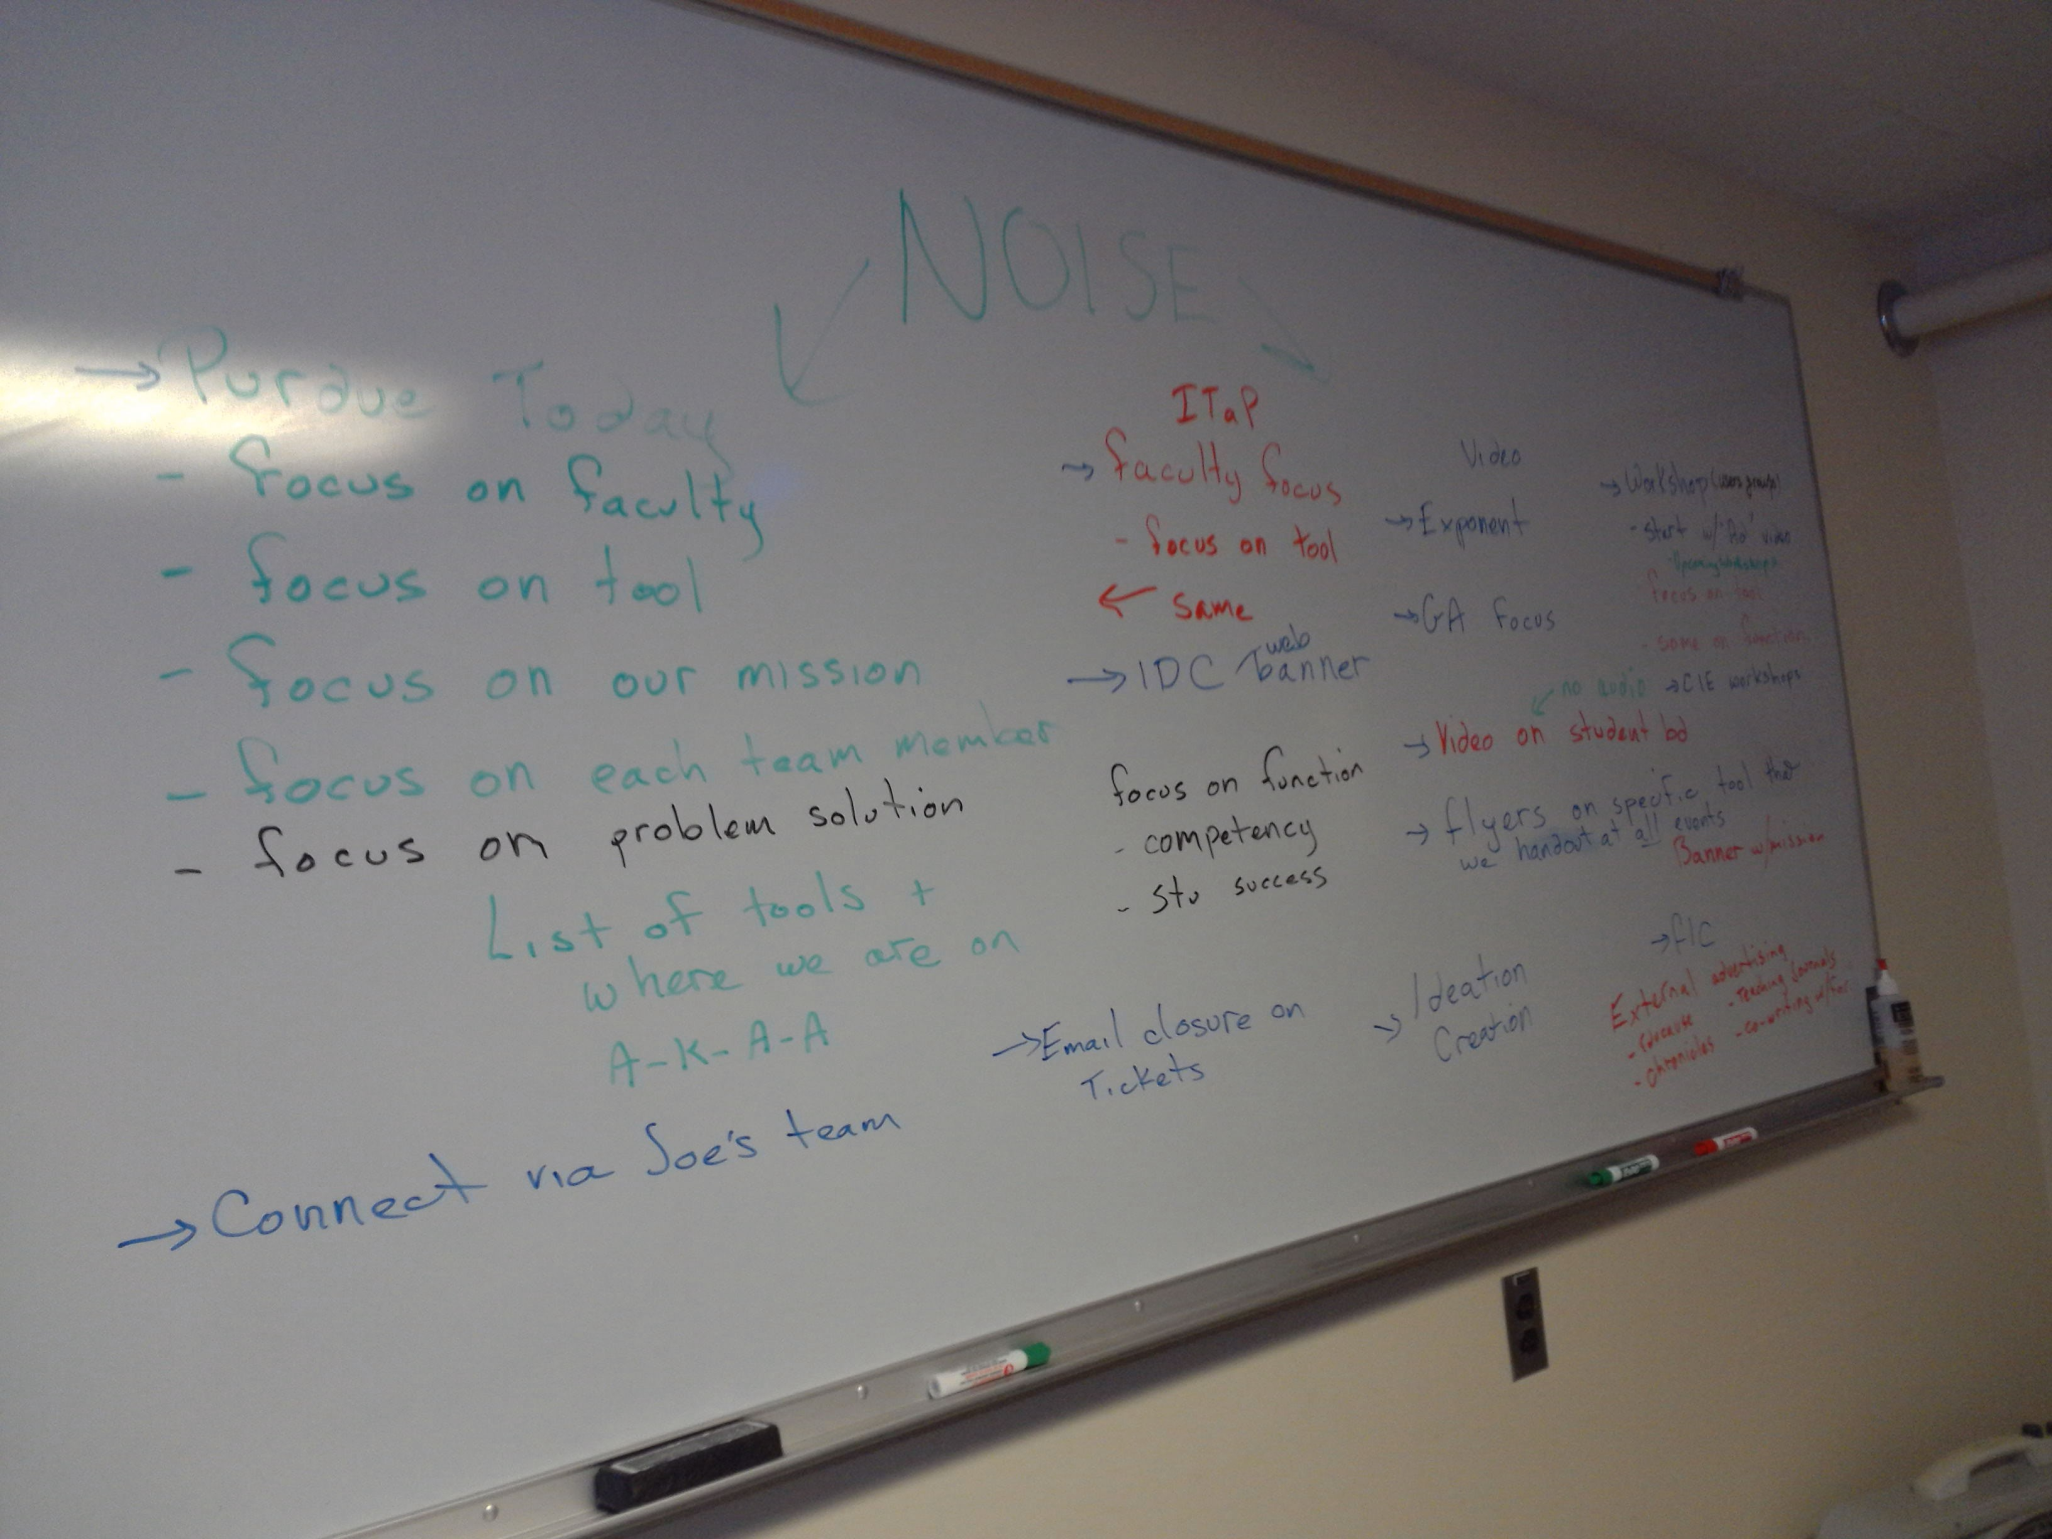 NOISE
→ Purdue Today
- focus on faculty
- focus on tool
- focus on our mission
- focus on each team member
- focus on problem solution
List of tools +
where we are on
A-K-A-A
→ Connect via Joe's team
ITaP
→ faculty focus
- focus on tool
← same
→ IDC web banner
focus on function
- competency
- stu success
→ Email closure on
Tickets
Video
→ Exponent
→ GA Focus
no audio
→ Video on student bd
→ flyers on specific tool that
we handout at all events
Banner w/mission
→ Ideation
Creation
→ Workshop (users groups)
- start w/ video
focus on tool
- same on function
→ CIE workshops
→ FIC
External advertising
- Educause
- Chronicles
- Teaching Journals
- co-writing w/fac